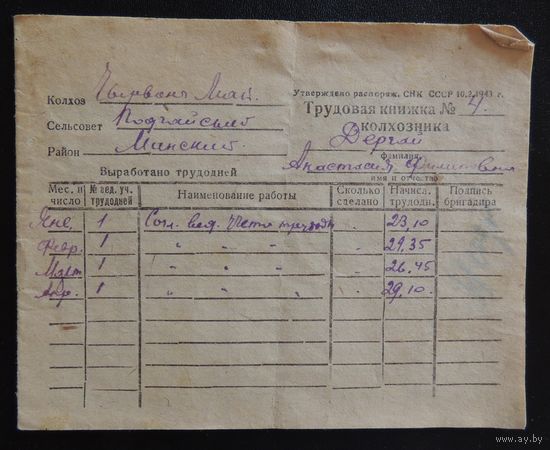 Утверждено распоряж. СНК СССР 10.2.1943 г.
Колхоз Чырвоны Май.
Трудовая книжка № 4.
колхозника
Сельсовет Подгайский
Дергай
фамилия
Район Минский
Анастасия Филиповна
имя и отчество
Выработано трудодней
Мес. и число № вед. уч. трудодней Наименование работы Сколько сделано Начисл. трудодн. Подпись бригадира
Янв. 1 Согл. вед. учета трудодн 23,10
Февр. 1 " " " " 29.35
Март 1 " " " 26.45
Апр. 1 " " " 29,10.
www.ay.by